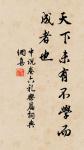 天下未有不學而
成者也
中說卷六礼樂篇詞典
網